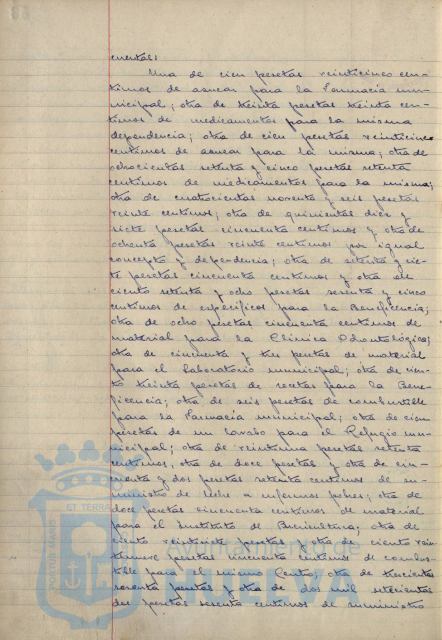 cuentas:
Una de cien pesetas veinticinco cen-
timos de azucar para la Farmacia mu-
nicipal; otra de treinta pesetas treinta cen-
timos de medicamentos para la misma
dependencia; otra de cien pesetas veinticinco
centimos de azucar para la misma; otra de
ochocientas setenta y cinco pesetas setenta
centimos de medicamentos para la misma;
otra de cuatrocientas noventa y seis pesetas
veinte centimos; otra de quinientas diez y
siete pesetas cincuenta centimos y otra de
ochenta pesetas veinte centimos por igual
concepto y dependencia; otra de setenta y sie-
te pesetas cincuenta centimos y otra de
ciento setenta y ocho pesetas sesenta y cinco
centimos de especificos para la Beneficencia;
otra de ocho pesetas cincuenta centimos de
material para la Clinica Odontologica;
otra de cincuenta y tres pesetas de material
para el Laboratorio municipal; otra de cien-
to treinta pesetas de recetas para la Bene-
ficencia; otra de seis pesetas de combustible
para la Farmacia municipal; otra de cien
pesetas de un lavabo para el Refugio mu-
nicipal; otra de veintiuna pesetas setenta
centimos, otra de doce pesetas y otra de cin-
cuenta y dos pesetas setenta centimos de su-
ministro de leche a enfermos pobres; otra de
doce pesetas cincuenta centimos de material
para el Instituto de Puericultura; otra de
ciento veintisiete pesetas y otra de ciento vein-
tinueve pesetas cincuenta centimos de combus-
tible para el mismo Centro; otra de trescientas
sesenta pesetas y otra de dos mil setecientas
dos pesetas sesenta centimos de suministro
PORTUS MARIS ET TERRAE
Ayuntamiento de
HUELVA